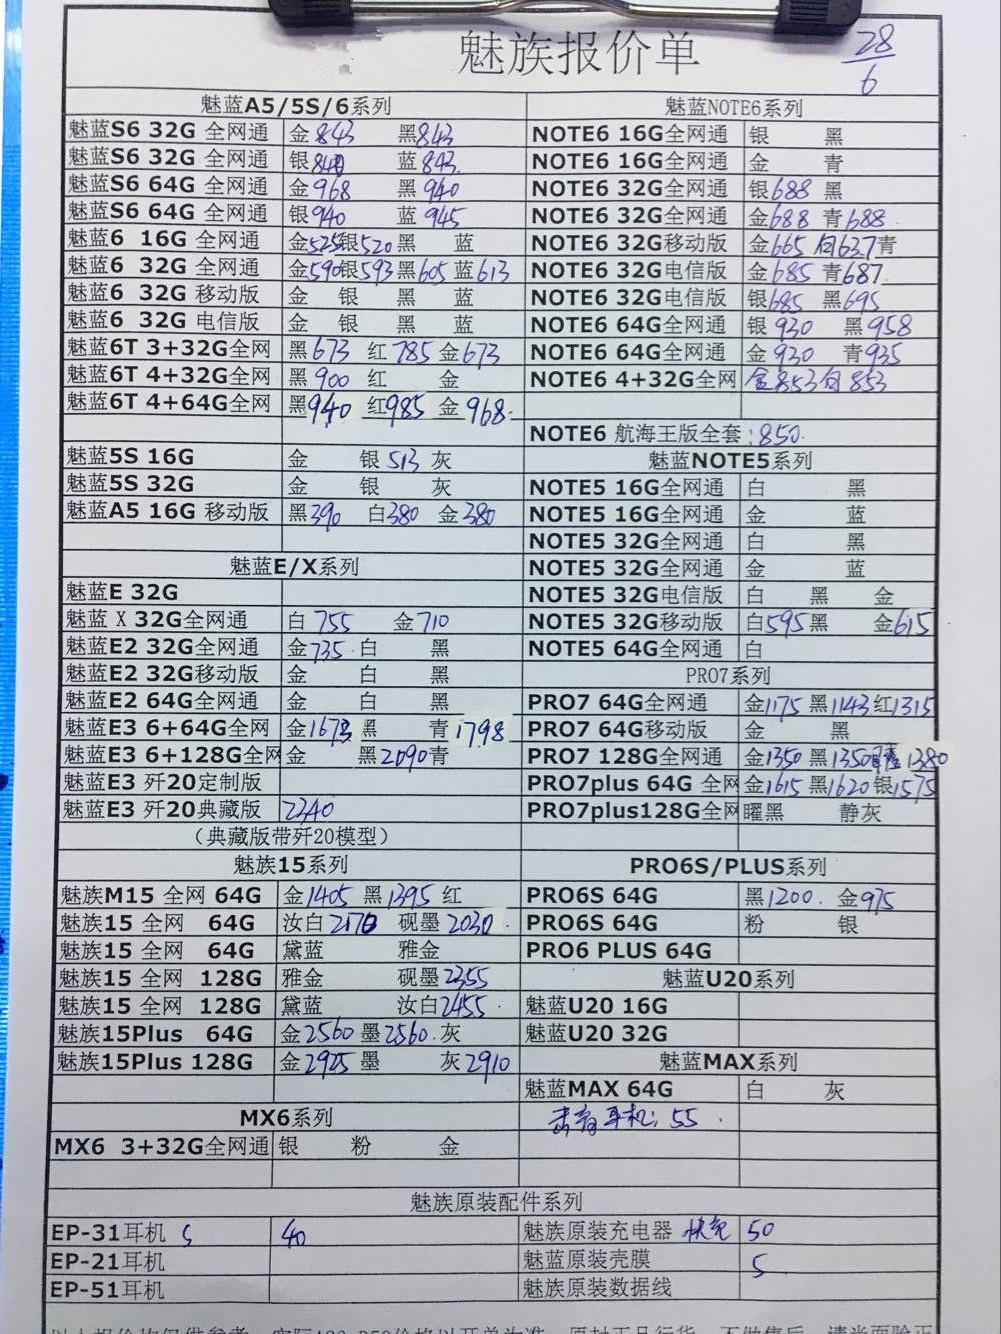 魅族报价单
28/6
魅蓝A5/5S/6系列
魅蓝S6 32G 全网通 金843 黑843
魅蓝S6 32G 全网通 银840 蓝843
魅蓝S6 64G 全网通 金968 黑940
魅蓝S6 64G 全网通 银940 蓝945
魅蓝6 16G 全网通 金525银520黑 蓝
魅蓝6 32G 全网通 金590银593黑605蓝613
魅蓝6 32G 移动版 金 银 黑 蓝
魅蓝6 32G 电信版 金 银 黑 蓝
魅蓝6T 3+32G全网 黑673 红785 金673
魅蓝6T 4+32G全网 黑900 红 金
魅蓝6T 4+64G全网 黑940 红985 金968
魅蓝5S 16G 金 银513 灰
魅蓝5S 32G 金 银 灰
魅蓝A5 16G 移动版 黑390 白380 金380
魅蓝E/X系列
魅蓝E 32G
魅蓝 X 32G全网通 白755 金710
魅蓝E2 32G全网通 金735 白 黑
魅蓝E2 32G移动版 金 白 黑
魅蓝E2 64G全网通 金 白 黑
魅蓝E3 6+64G全网 金1673 黑 青1798
魅蓝E3 6+128G全网 金 黑2090青
魅蓝E3 歼20定制版
魅蓝E3 歼20典藏版 2240
（典藏版带歼20模型）
魅族15系列
魅族M15 全网 64G 金1405 黑1395 红
魅族15 全网 64G 汝白2170 砚墨2030
魅族15 全网 64G 黛蓝 雅金
魅族15 全网 128G 雅金 砚墨2355
魅族15 全网 128G 黛蓝 汝白2455
魅族15Plus 64G 金2560 墨2560 灰
魅族15Plus 128G 金2925 墨 灰2910
MX6系列
MX6 3+32G全网通 银 粉 金
魅蓝NOTE6系列
NOTE6 16G全网通 银 黑
NOTE6 16G全网通 金 青
NOTE6 32G全网通 银688 黑
NOTE6 32G全网通 金688 青688
NOTE6 32G移动版 金665 白637青
NOTE6 32G电信版 金685 青687
NOTE6 32G电信版 银685 黑695
NOTE6 64G全网通 银930 黑958
NOTE6 64G全网通 金930 青935
NOTE6 4+32G全网 金853白853
NOTE6 航海王版全套:850
魅蓝NOTE5系列
NOTE5 16G全网通 白 黑
NOTE5 16G全网通 金 蓝
NOTE5 32G全网通 白 黑
NOTE5 32G全网通 金 蓝
NOTE5 32G电信版 白 黑 金
NOTE5 32G移动版 白595黑 金615
NOTE5 64G全网通 白
PRO7系列
PRO7 64G全网通 金1175 黑1143红1315
PRO7 64G移动版 金 黑
PRO7 128G全网通 金1350 黑1350 1380
PRO7plus 64G 全网 金1615 黑1620 银1575
PRO7plus128G全网 曜黑 静灰
PRO6S/PLUS系列
PRO6S 64G 黑1200 金975
PRO6S 64G 粉 银
PRO6 PLUS 64G
魅蓝U20系列
魅蓝U20 16G
魅蓝U20 32G
魅蓝MAX系列
魅蓝MAX 64G 白 灰
耳机: 55
魅族原装配件系列
EP-31耳机 40
EP-21耳机
EP-51耳机
魅族原装充电器 快充 50
魅蓝原装壳膜 5
魅族原装数据线